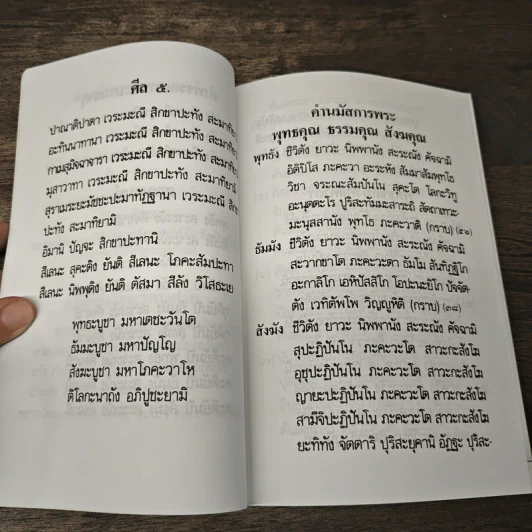 ศีล ๕.
ปาณาติปาตา เวระมะณี สิกขาปะทัง สะมาทิยา
อะทินนาทานา เวระมะณี สิกขาปะทัง สะมาทิยา
กาเมสุมิจฉาจารา เวระมะณี สิกขาปะทัง สะมาทิ
มุสาวาทา เวระมะณี สิกขาปะทัง สะมาทิยามิ
สุราเมระยะมัชชะปะมาทัฏฐานา เวระมะณี สิกข
ปะทัง สะมาทิยามิ
อิมานิ ปัญจะ สิกขาปะทานิ
สีเลนะ สุคะติง ยันติ สีเลนะ โภคะสัมปะทา
สีเลนะ นิพพุติง ยันติ ตัสมา สีลัง วิโสธะเย
พุทธะบูชา มหาเตชะวันโต
ธัมมะบูชา มหาปัญโญ
สังฆะบูชา มหาโภคะวาโห
ติโลกะนาถัง อภิปูชะยามิ
คำนมัสการพระ
พุทธคุณ ธรรมคุณ สังฆคุณ
พุทธัง ชีวิตัง ยาวะ นิพพานัง สะระณัง คัจฉามิ
อิติปิโส ภะคะวา อะระหัง สัมมาสัมพุทโธ
วิชา จะระณะสัมปันโน สุคะโต โลกะวิทู
อะนุตตะโร ปุริสะทัมมะสาระถิ สัตถาเทวะ-
มะนุสสานัง พุทโธ ภะคะวาติ (กราบ) (๕๖)
ธัมมัง ชีวิตัง ยาวะ นิพพานัง สะระณัง คัจฉามิ
สะวากขาโต ภะคะวะตา ธัมโม สันทิฏฐิโก
อะกาลิโก เอหิปัสสิโก โอปะนะยิโก ปัจจัต-
ตัง เวทิตัพโพ วิญญูหีติ (กราบ) (๓๘)
สังฆัง ชีวิตัง ยาวะ นิพพานัง สะระณัง คัจฉามิ
สุปะฏิปันโน ภะคะวะโต สาวะกะสังโฆ
อุชุปะฏิปันโน ภะคะวะโต สาวะกะสังโฆ
ญายะปะฏิปันโน ภะคะวะโต สาวะกะสังโฆ
สามีจิปะฏิปันโน ภะคะวะโต สาวะกะสังโฆ
ยะทิทัง จัตตาริ ปุริสะยุคานิ อัฏฐะ ปุริสะ-